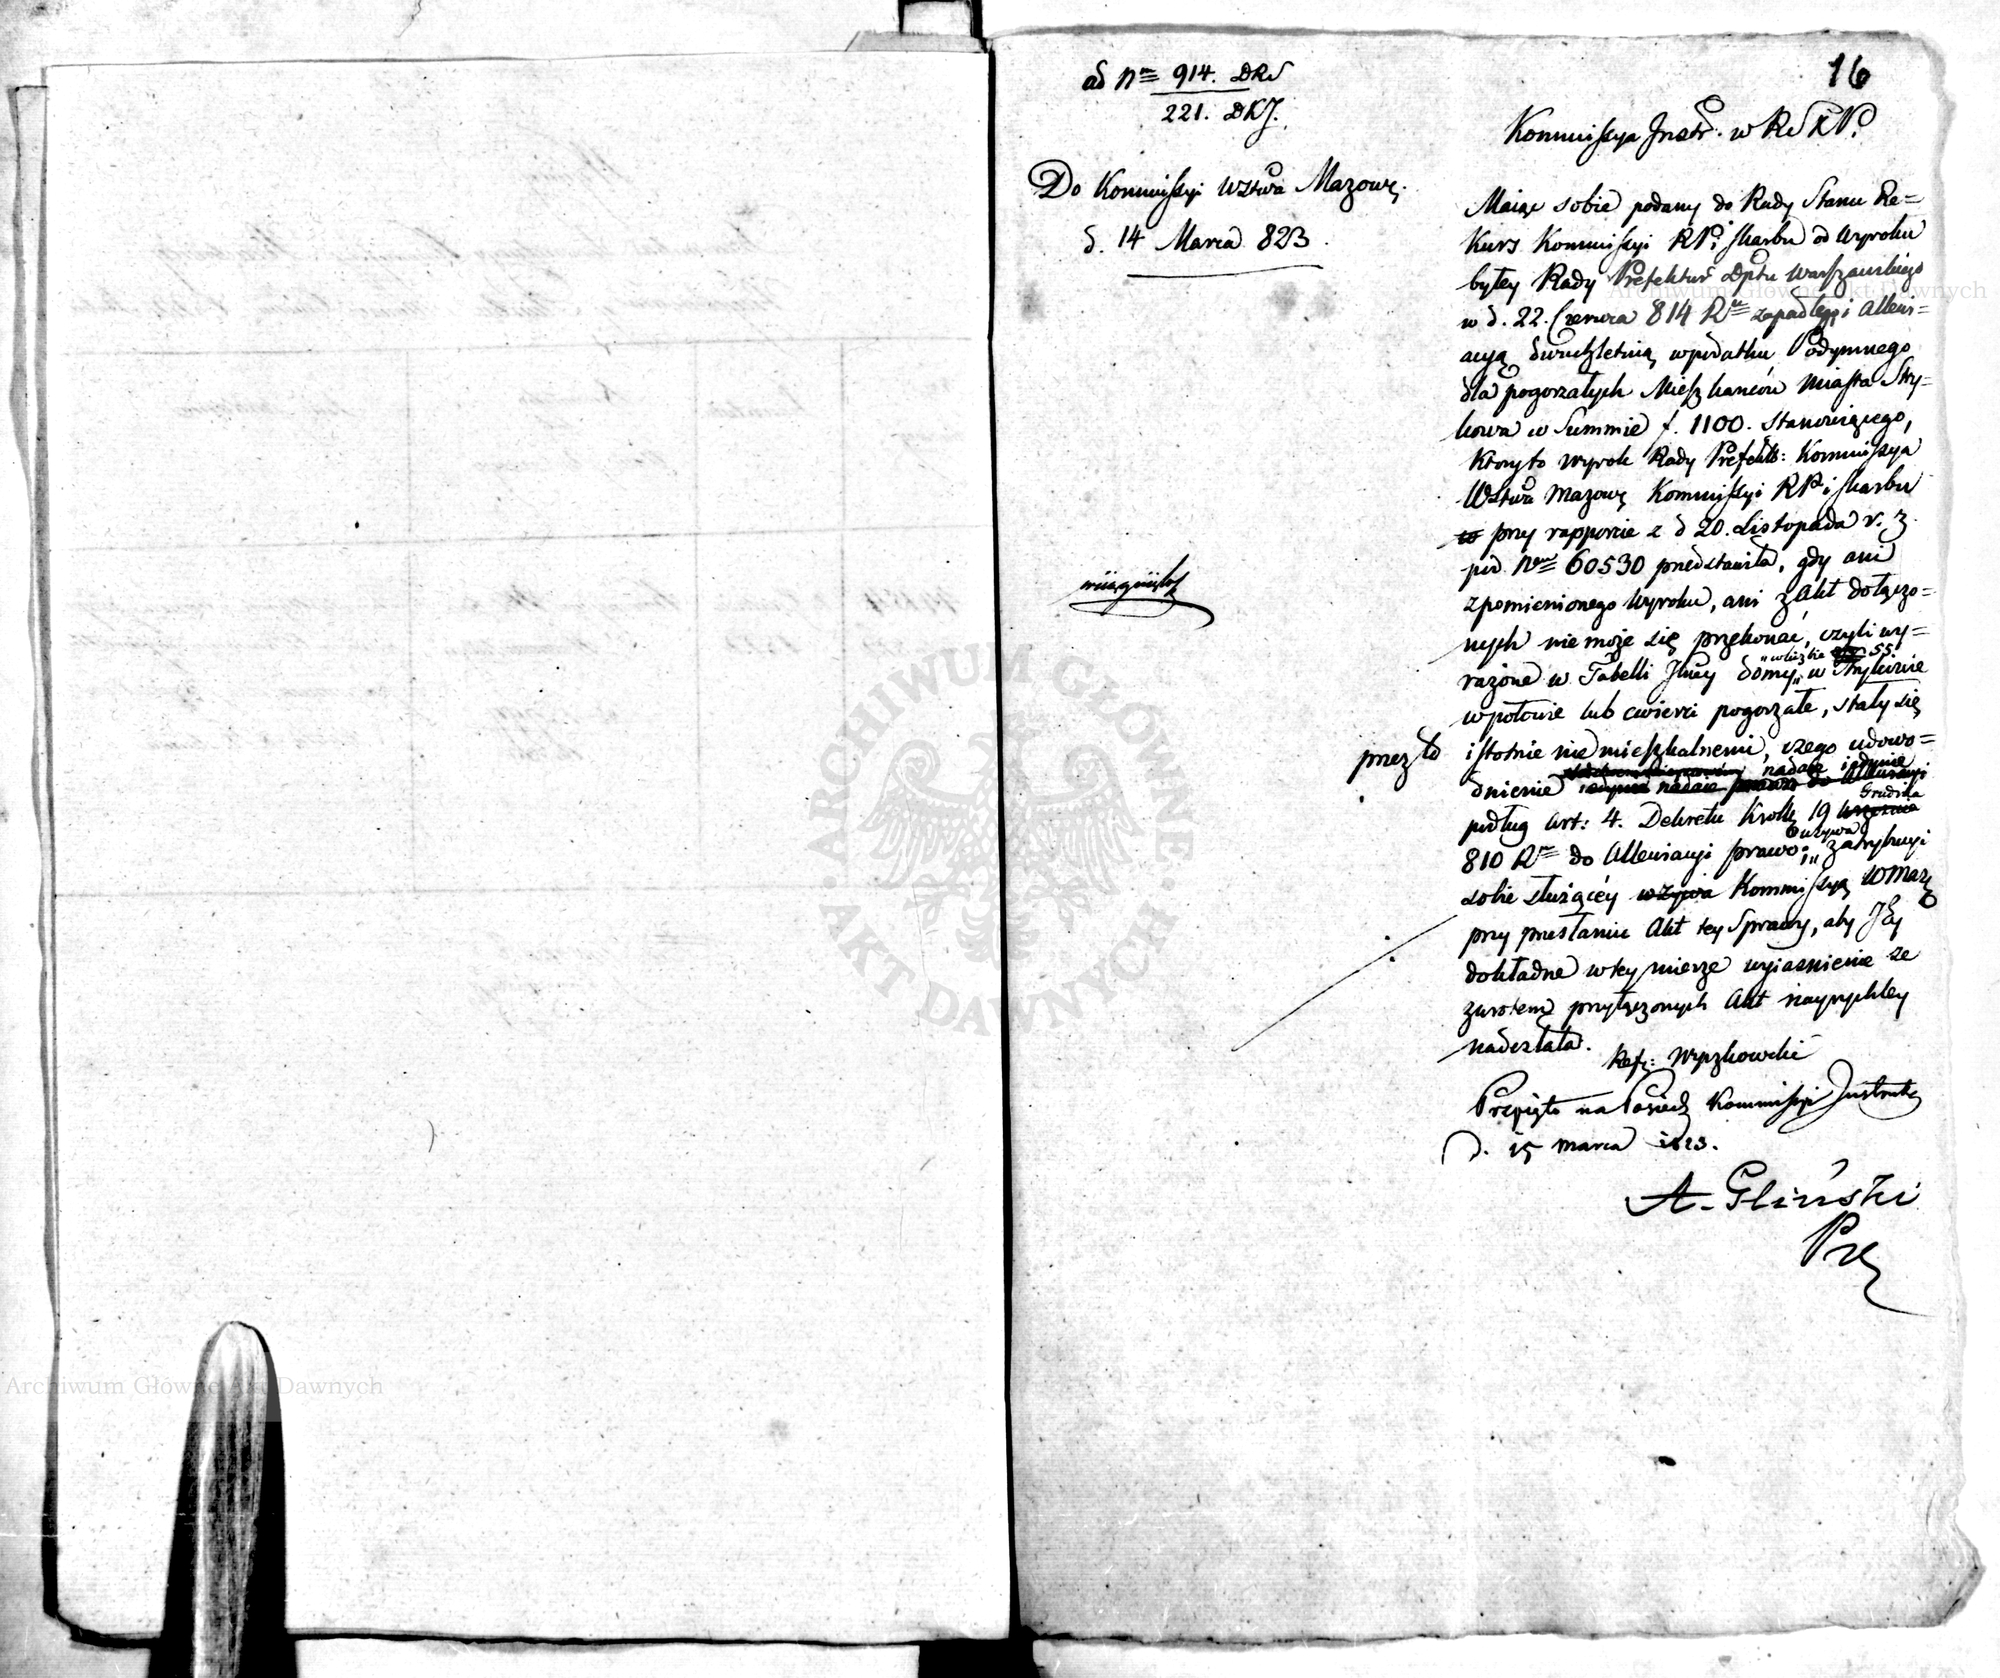 16
ad Nrm 914. DRS
221. DKJ.
Do Kommissyi Wztwa Mazow:
d. 14 Marca 823
Kommissya Instr. w RSKP.
Maiąc sobie podany do Rady Stanu Re=
kurs Kommissyi RPi Skarbu od Wyroku
byłey Rady Prefektur Dptu Warszawskiego
w d. 22. Czerwca 814 R zapadłego i Allewi=
acyą dwuchletnią w podatku Podymnego
dla pogorzałych Mieszkańców Miasta Stry=
kowa w Summie f. 1100. stanowiącego,
który to wyrok Rady Prefekt: Kommissya
Wztwa Mazow: Kommissyi RPi Skarbu
przy rapporcie z d 20. Listopada r. z.
pod Nrm 60530 przedstawiła, gdy ani
z pomienionego Wyroku, ani z Akt dołączo=
nych nie może się przekonać, czyli wy=
"w liczbie 55
rażone w Tabelli domy" w Strykowie
w połowie lub cwierci pogorzałe, stały się
przez to
istotnie niemieszkalnemi, czego udowo=
nadaie iedynie
dnienie iedynie nadaie prawo do Allewiacyi
Grudnia
podług art: 4. Dekretu Królk 19 Września
wzywa
810 R do Allewiacyi prawo; " z atrybucyi
sobie służącéy wzywa Kommissyą WMaz
przy przesłaniu Akt tey Sprawy, aby Jey
dokładne w tey mierze wyiasnienie ze
zwrotem przyłączonych Akt nayrychley
nadesłała.
Ref: Wyszkowski
Przyięto na Posiedz Kommissyi Instruk:
d. 15 marca 1823.
A. Gliński
Prez